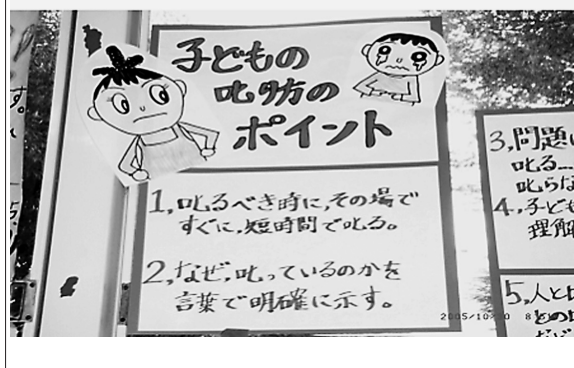 子どもの
叱り方の
ポイント
1,叱るべき時に,その場で
すぐに,短時間で叱る。
2,なぜ,叱っているのかを
言葉で明確に示す。
3,問題
叱る
叱らな
4,子ども
理解
5,人と
との
2005/10/